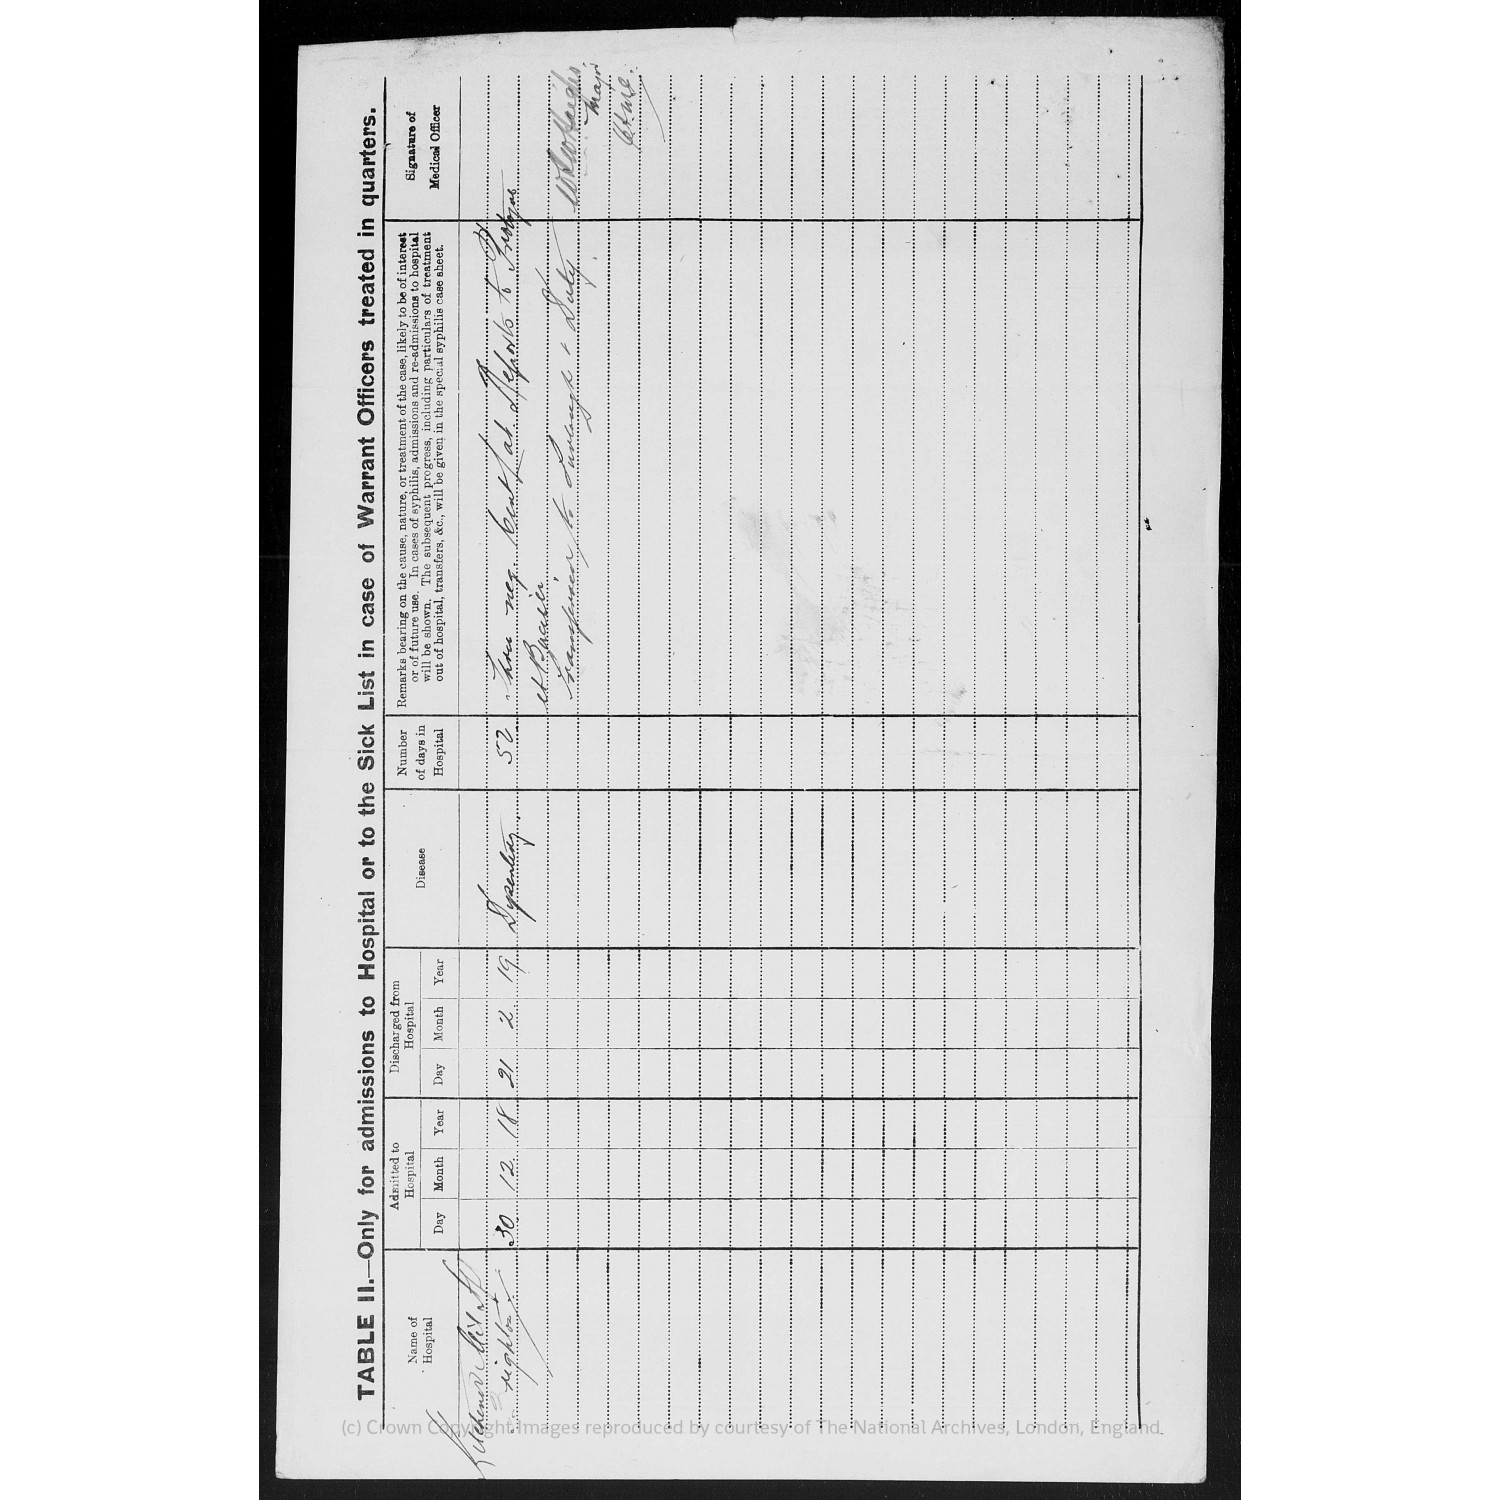 TABLE II.—Only for admissions to Hospital or to the Sick List in case of Warrant Officers treated in quarters.
Name of
Hospital
Admitted to
Hospital
Day Month Year
Discharged from
Hospital
Day Month Year
Disease
Number
of days in
Hospital
Remarks bearing on the cause, nature, or treatment of the case, likely to be of interest
or of future use. In cases of syphilis, admissions and re-admissions to hospital
will be shown. The subsequent progress, including particulars of treatment
out of hospital, transfers, &c., will be given in the special syphilis case sheet.
Signature of
Medical Officer
Kitchener Mil
Brighton
30 12 18 21 2 19 Dysentery 52 Three neg Reports to
et Bacilli
Transferred to Furlough & Duty
Major
(c) Crown Copyright Images reproduced by courtesy of The National Archives, London, England.